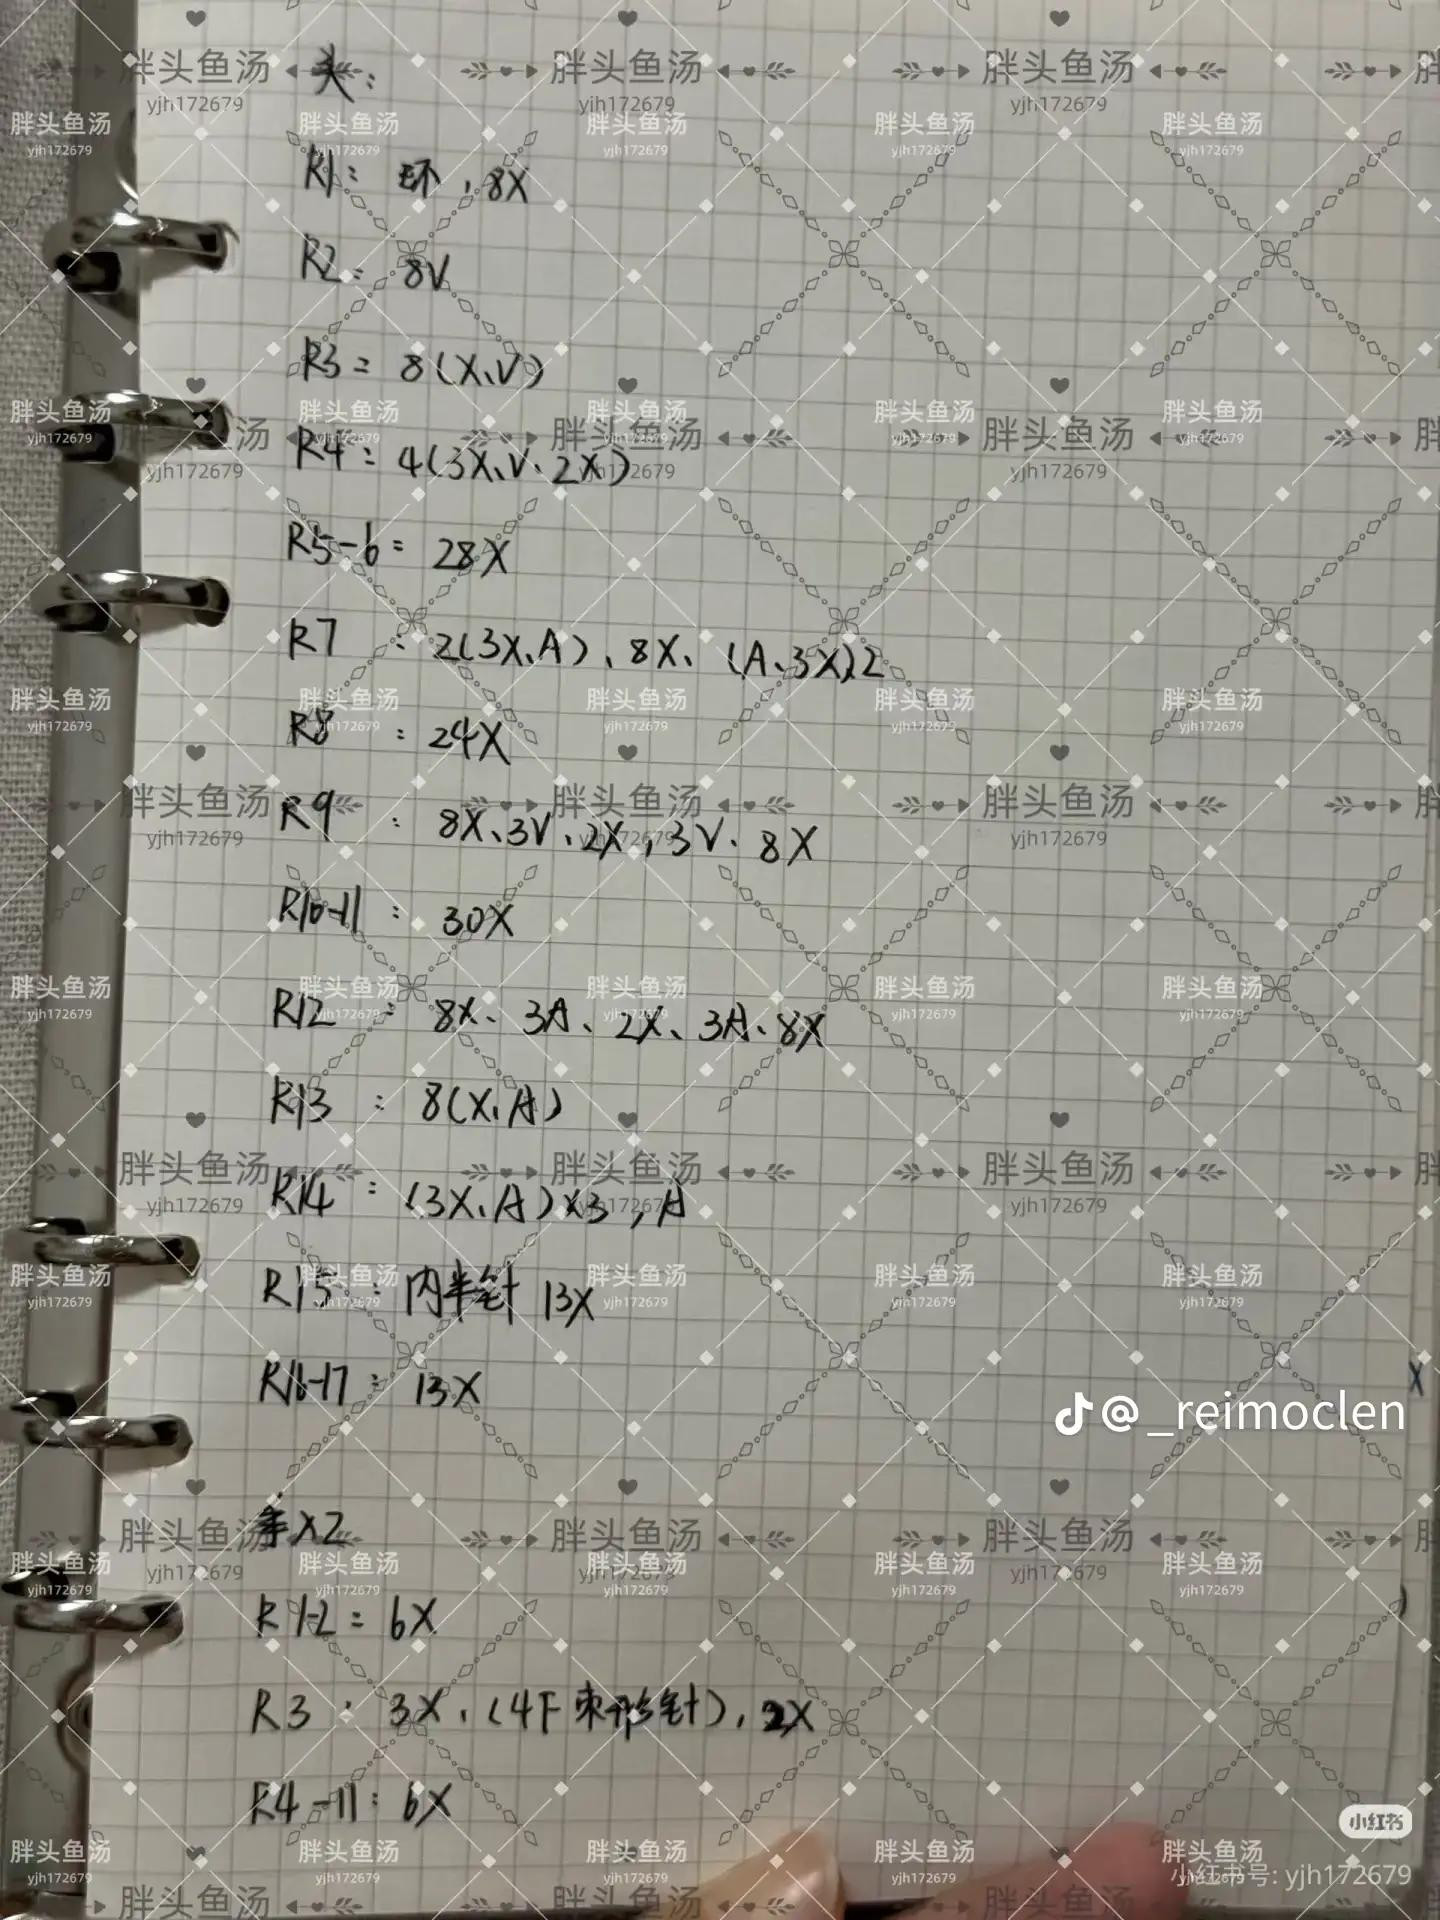 头：
R1： 环，8X
R2： 8V
R3： 8(X、V)
R4： 4(3X、V、2X)
R5-6： 28X
R7 ： 2(3X、A)、8X、(A、3X)2
R8 ： 24X
R9 ： 8X、3V、2X，3V、8X
R10-11 ： 30X
R12 ： 8X、3A、2X、3A、8X
R13 ： 8(X、A)
R14 ： (3X、A)×3，A
R15 ： 内半针 13X
R16-17： 13X
手X2
R1-2： 6X
R3 ： 3X，(4F枣形针)，2X
R4-11： 6X
@_reimoclen
小红书
小红书号: yjh172679
胖头鱼汤
yjh172679